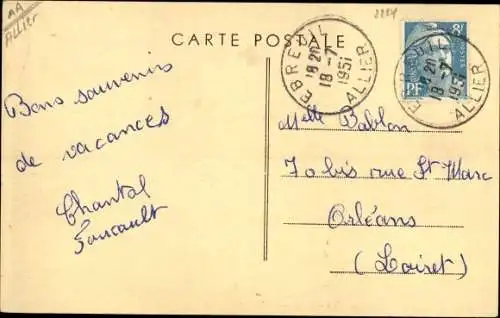 AA
Allier
2224
CARTE POSTALE
EBREUIL
18 20
18 -7
1951
ALLIER
EBREUIL
18 20
18 -7
1951
ALLIER
8F
PF
Bons souvenirs
de vacances
Chantal
Foucault
Melle Bablon
70 bis rue St Marc
Orléans
(Loiret)